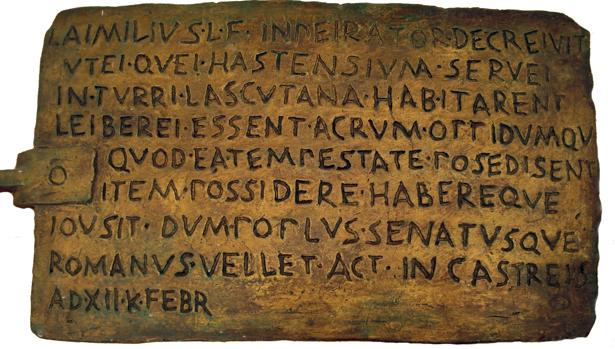 L·AIMILIVS·L·F·INPEIRATOR·DECREIVIT
VTEI·QVEI·HASTENSIVM·SERVEI
IN·TVRRI·LASCVTANA·HABITARENT
LEIBEREI·ESSENT·ACRVM·OPPIDVMQV
QVOD·EA·TEMPESTATE·POSEDISENT
ITEM·POSSIDERE·HABEREQVE
IOVSIT·DVM·POPLVS·SENATVSQVE
ROMANVS·VELLET·ACT·IN CASTREIS
AD·XII·K·FEBR